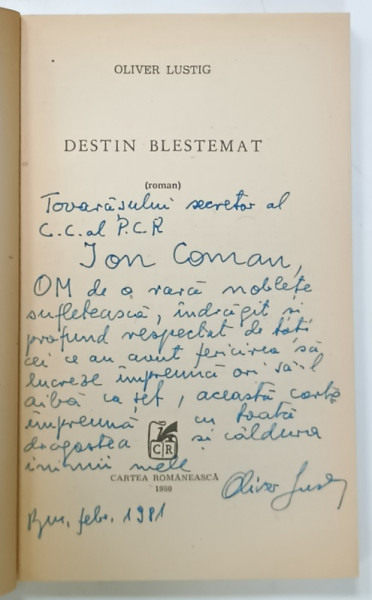 OLIVER LUSTIG
DESTIN BLESTEMAT
(roman)
Tovarășului secretar al
C.C. al P.C.R
Ion Coman,
OM de o rară noblețe
sufletească, îndrăgit și
profund respectat de toți
cei ce au avut fericirea să
lucreze împreună ori să-l
aibă ca șef, această carte
împreună cu toată
dragostea și căldura
inimii mele
CR
CARTEA ROMÂNEASCĂ
1980
Oliver Lustig
Buc. febr. 1981